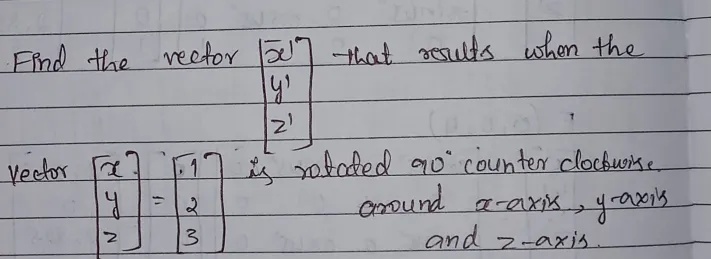 Find the vector [x' that results when the
y'
z']
vector [x y z] = [1 2 3] is rotated 90° counter clockwise
around x-axis, y-axis
and z-axis.